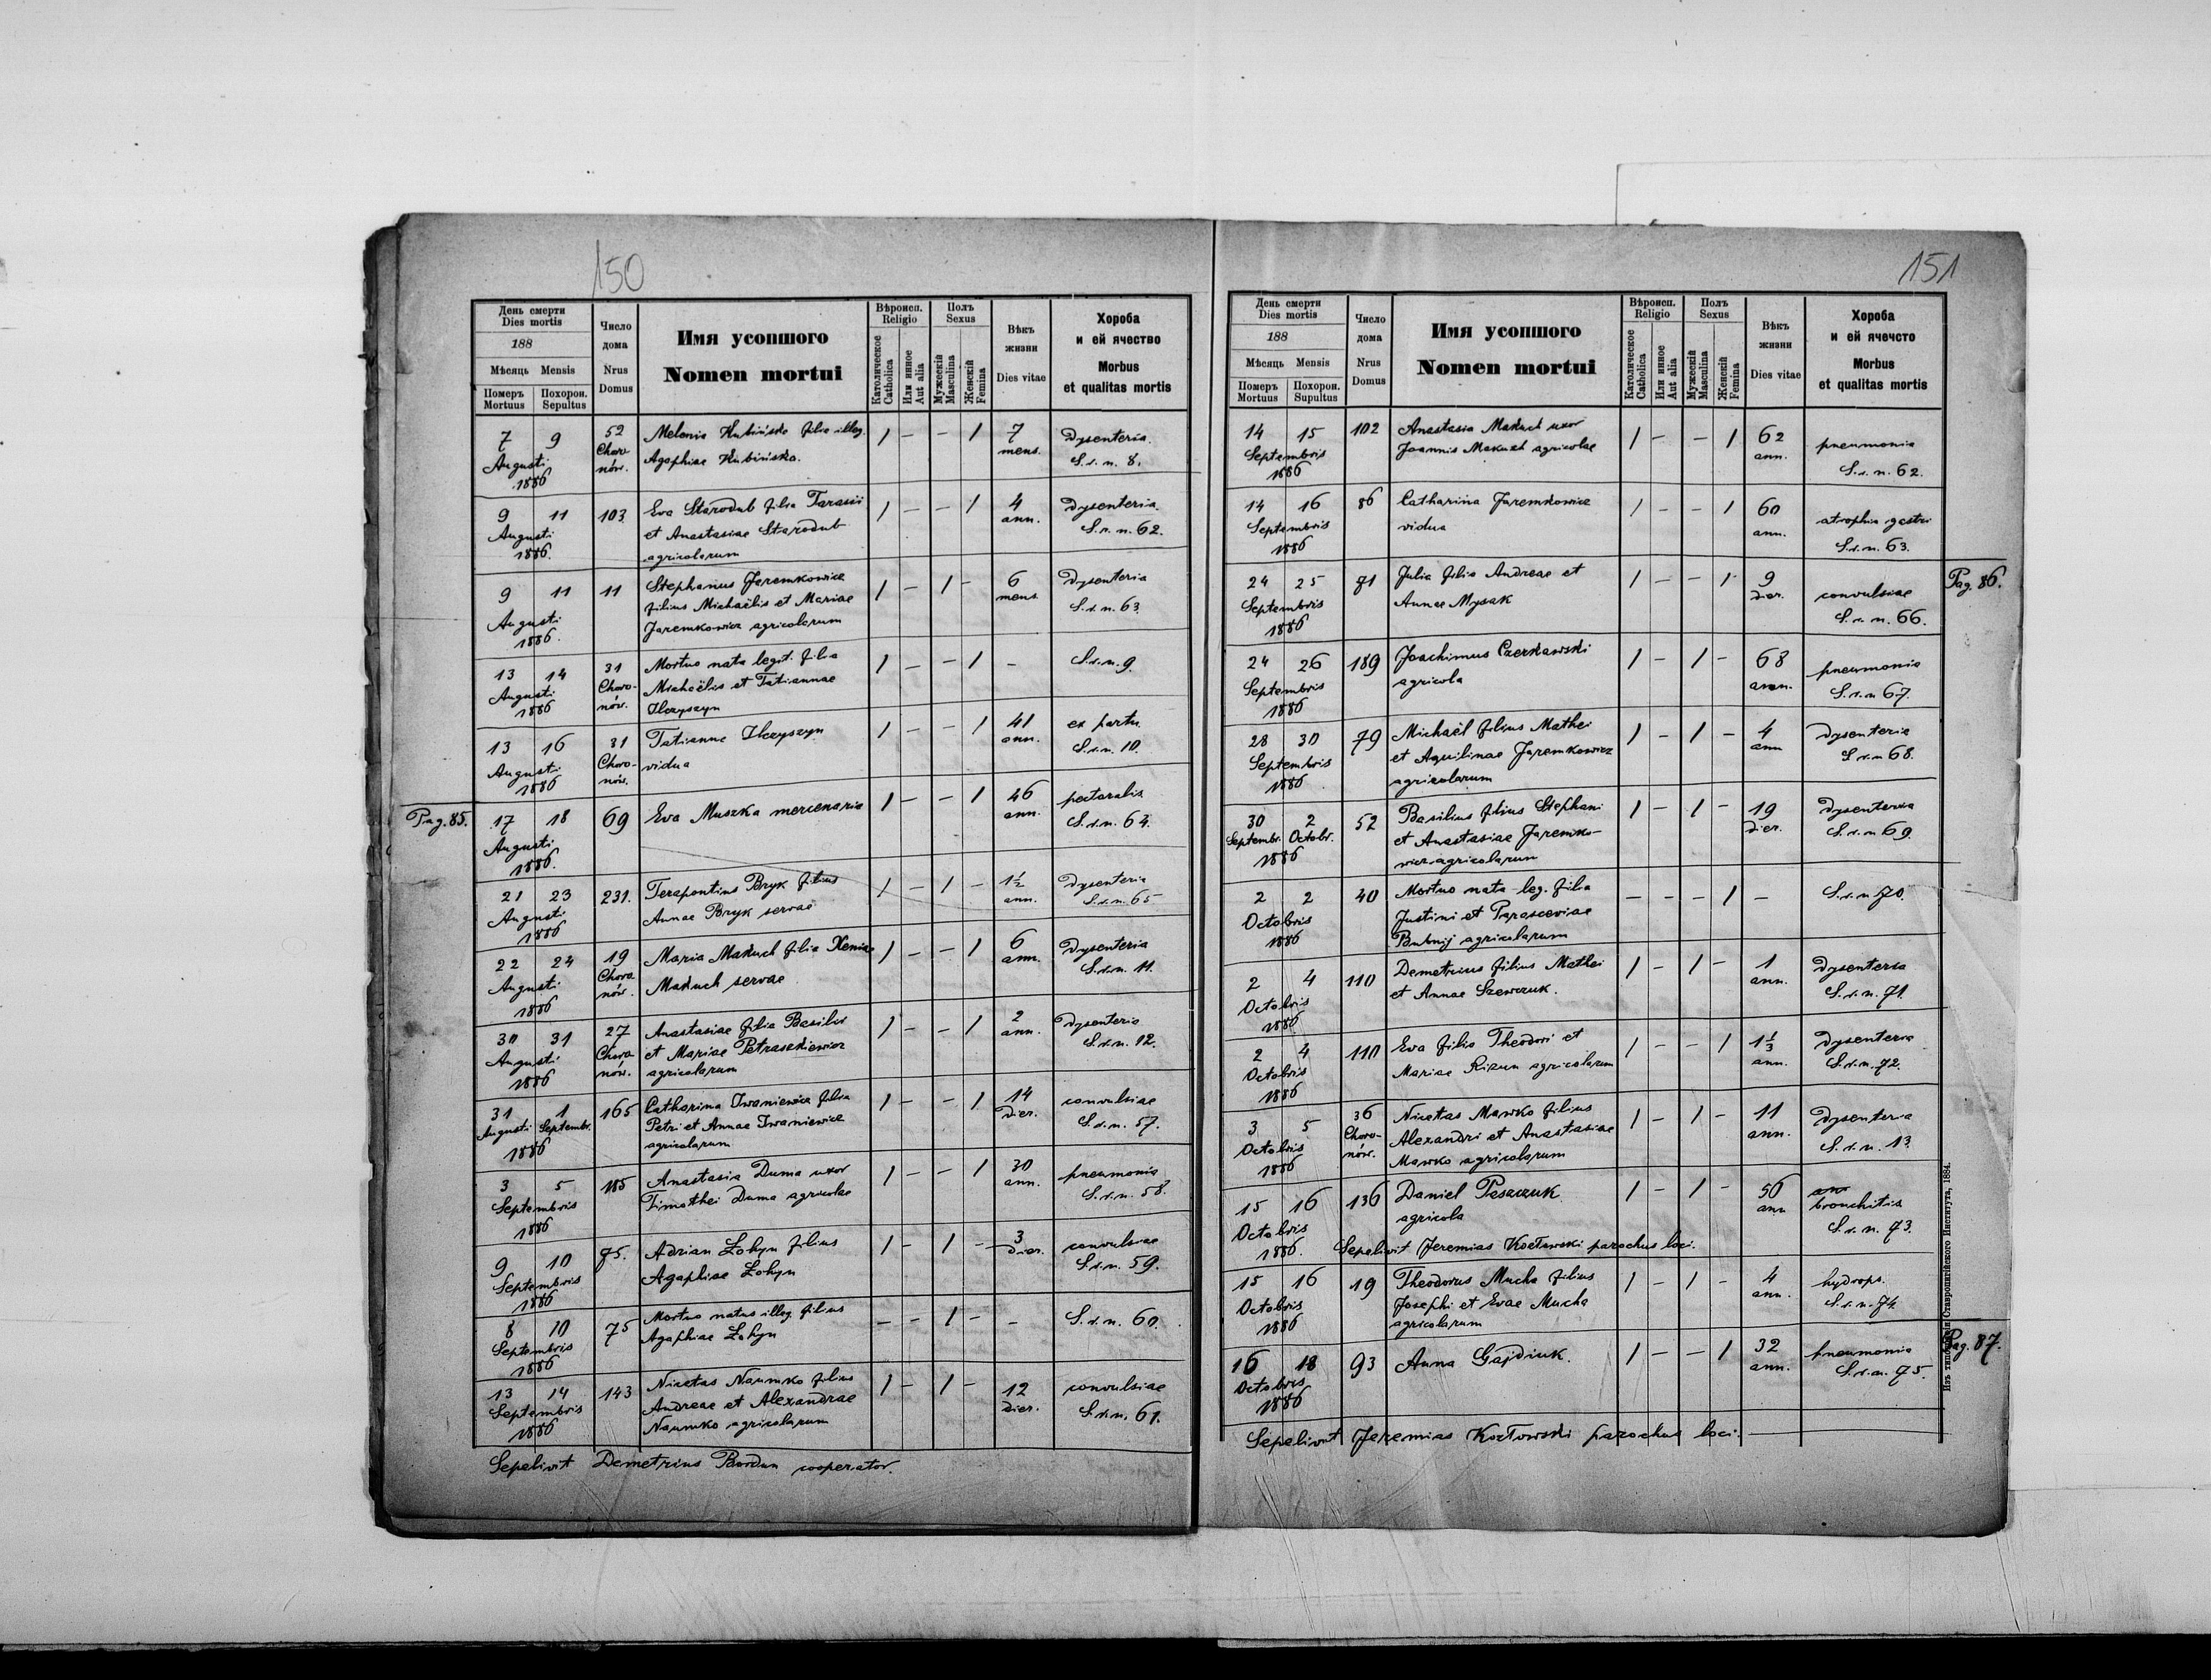 150
День смерти
Dies mortis
188
Мѣсяць Mensis
Померъ Mortuus
Похорон. Sepultus
Число дома
Nrus Domus
Имя усопшого
Nomen mortui
Вѣроисп. Religio
Католическое Catholica
Или инное Aut alia
Полъ Sexus
Мужескій Masculina
Женскій Femina
Вѣкъ жизни
Dies vitae
Хороба и ей ячество
Morbus et qualitas mortis
7 9 52 Melania Hubińska filia illeg. 1 – – 1 7 Dysenteria
Augusti Choro- Agaphiae Hubińska. mens. S.r.n. 8.
1886 nów.
9 11 103 Eva Starodub filia Tarasii 1 – – 1 4 Dysenteria
Augusti et Anastasiae Starodub ann. S.r.n. 62.
1886. agricolarum
9 11 11 Stephanus Jaremkowicz 1 – 1 – 6 Dysenteria
Augusti filius Michaëlis et Mariae mens. S.r.n. 63.
1886. Jaremkowicz agricolarum
13 14 31 Mortuo nata legit. filia 1 – – 1 – S.r.n. 9.
Augusti Choro- Michaëlis et Tatiannae
1886 nów. Ilczyszyn
13 16 31 Tatianna Ilczyszyn 1 – – 1 41 ex partu
Augusti Choro- vidua ann. S.r.n. 10.
1886 nów.
Pag. 85. 17 18 69 Eva Muszka mercenaria 1 – – 1 46 pectoralis
Augusti ann. S.r.n. 64.
1886.
21 23 231. Terapontius Bryk filius 1 – 1 – 1½ Dysenteria
Augusti Annae Bryk servae ann. S.r.n. 65
1886
22 24 19 Maria Makuch filia Xeniae 1 – – 1 6 Dysenteria
Augusti Choro- Makuch servae ann. S.r.n. 11.
1886 nów.
30 31 27 Anastasiae filia Basilii 1 – – 1 2 Dysenteria
Augusti Choro- et Mariae Petraszkiewicz ann. S.r.n. 12.
1886 nów. agricolarum
31 1 165 Catharina Iwaniewicz filia 1 – – 1 14 convulsiae
Augusti Septembr. Petri et Annae Iwaniewicz dier. S.r.n. 57.
1886 agricolarum
3 5 185 Anastasia Duma uxor 1 – – 1 30 pneumonia
Septembris Timothei Duma agricolae ann. S.r.n. 58.
1886
9 10 75. Adrian Łohyn filius 1 – 1 – 3 convulsiae
Septembris Agaphiae Łohyn dier. S.r.n. 59.
1886
8 10 75 Mortuo natus illeg. filius – – 1 – – S.r.n. 60.
Septembris Agaphiae Łohyn
1886
13 14 143 Nicetas Naumko filius 1 – 1 – 12 convulsiae
Septembris Andreae et Alexandrae dier. S.r.n. 61.
1886 Naumko agricolarum
Sepelivit Demetrius Bordun cooperator.
151
День смерти
Dies mortis
188
Мѣсяць Mensis
Померъ Mortuus
Похорон. Supultus
Число дома
Nrus Domus
Имя усопшого
Nomen mortui
Вѣроисп. Religio
Католическое Catholica
Или инное Aut alia
Полъ Sexus
Мужескій Masculina
Женскій Femina
Вѣкъ жизни
Dies vitae
Хороба и ей ячечсто
Morbus et qualitas mortis
14 15 102 Anastasia Makuch uxor 1 – – 1 62 pneumonia
Septembris Joannis Makuch agricolae ann. S.r.n. 62.
1886
14 16 86 Catharina Jaremkowicz 1 – – 1 60 atrophia gastri
Septembris vidua ann. S.r.n. 63.
1886
24 25 71 Julia filia Andreae et 1 – – 1 9 convulsiae Pag. 86.
Septembris Annae Mysak dier. S.r.n. 66.
1886
24 26 189 Joachimus Czerkawski 1 – 1 – 68 pneumonia
Septembris agricola ann. S.r.n. 67.
1886
28 30 79 Michaël filius Mathei 1 – 1 – 4 Dysenteria
Septembris et Aquilinae Jaremkowicz ann S.r.n. 68.
1886 agricolarum
30 2 52 Basilius filius Stephani 1 – 1 – 19 Dysenteria
Septembr. Octobr. et Anastasiae Jaremko- dier. S.r.n. 69.
1886 wicz agricolarum
2 2 40 Mortuo nata leg. filia – – – 1 – S.r.n. 70.
Octobris Justini et Parasceviae
1886 Bubnij agricolarum
2 4 110 Demetrius filius Mathei 1 – 1 – 1 Dysenteria
Octobris et Annae Szewczuk. ann. S.r.n. 71.
1886
2 4 110 Eva filia Theodori et 1 – – 1 1⅓ Dysenteria
Octobris Mariae Rizun agricolarum ann. S.r.n. 72.
1886
3 5 36 Nicetas Mawko filius 1 – 1 – 11 Dysenteria
Octobris Choro- Alexandri et Anastasiae ann. S.r.n. 13.
1886 nów. Mawko agricolarum
15 16 136 Daniel Pasaczuk 1 – 1 – 56 bronchitis
Octobris agricola ann S.r.n. 73.
1886 Sepelivit Jeremias Kozłowski parochus loci.
15 16 19 Theodorus Mucha filius 1 – 1 – 4 hydrops.
Octobris Josephi et Evae Mucha ann. S.r.n. 74.
1886 agricolarum
16 18 93 Anna Gajdiuk. 1 – – 1 32 pneumonia Pag. 87.
Octobris ann. S.r.n. 75.
1886
Sepelivit Jeremias Kozłowski parochus loci.
Изъ типографіи Ставропигійского Института, 1884.